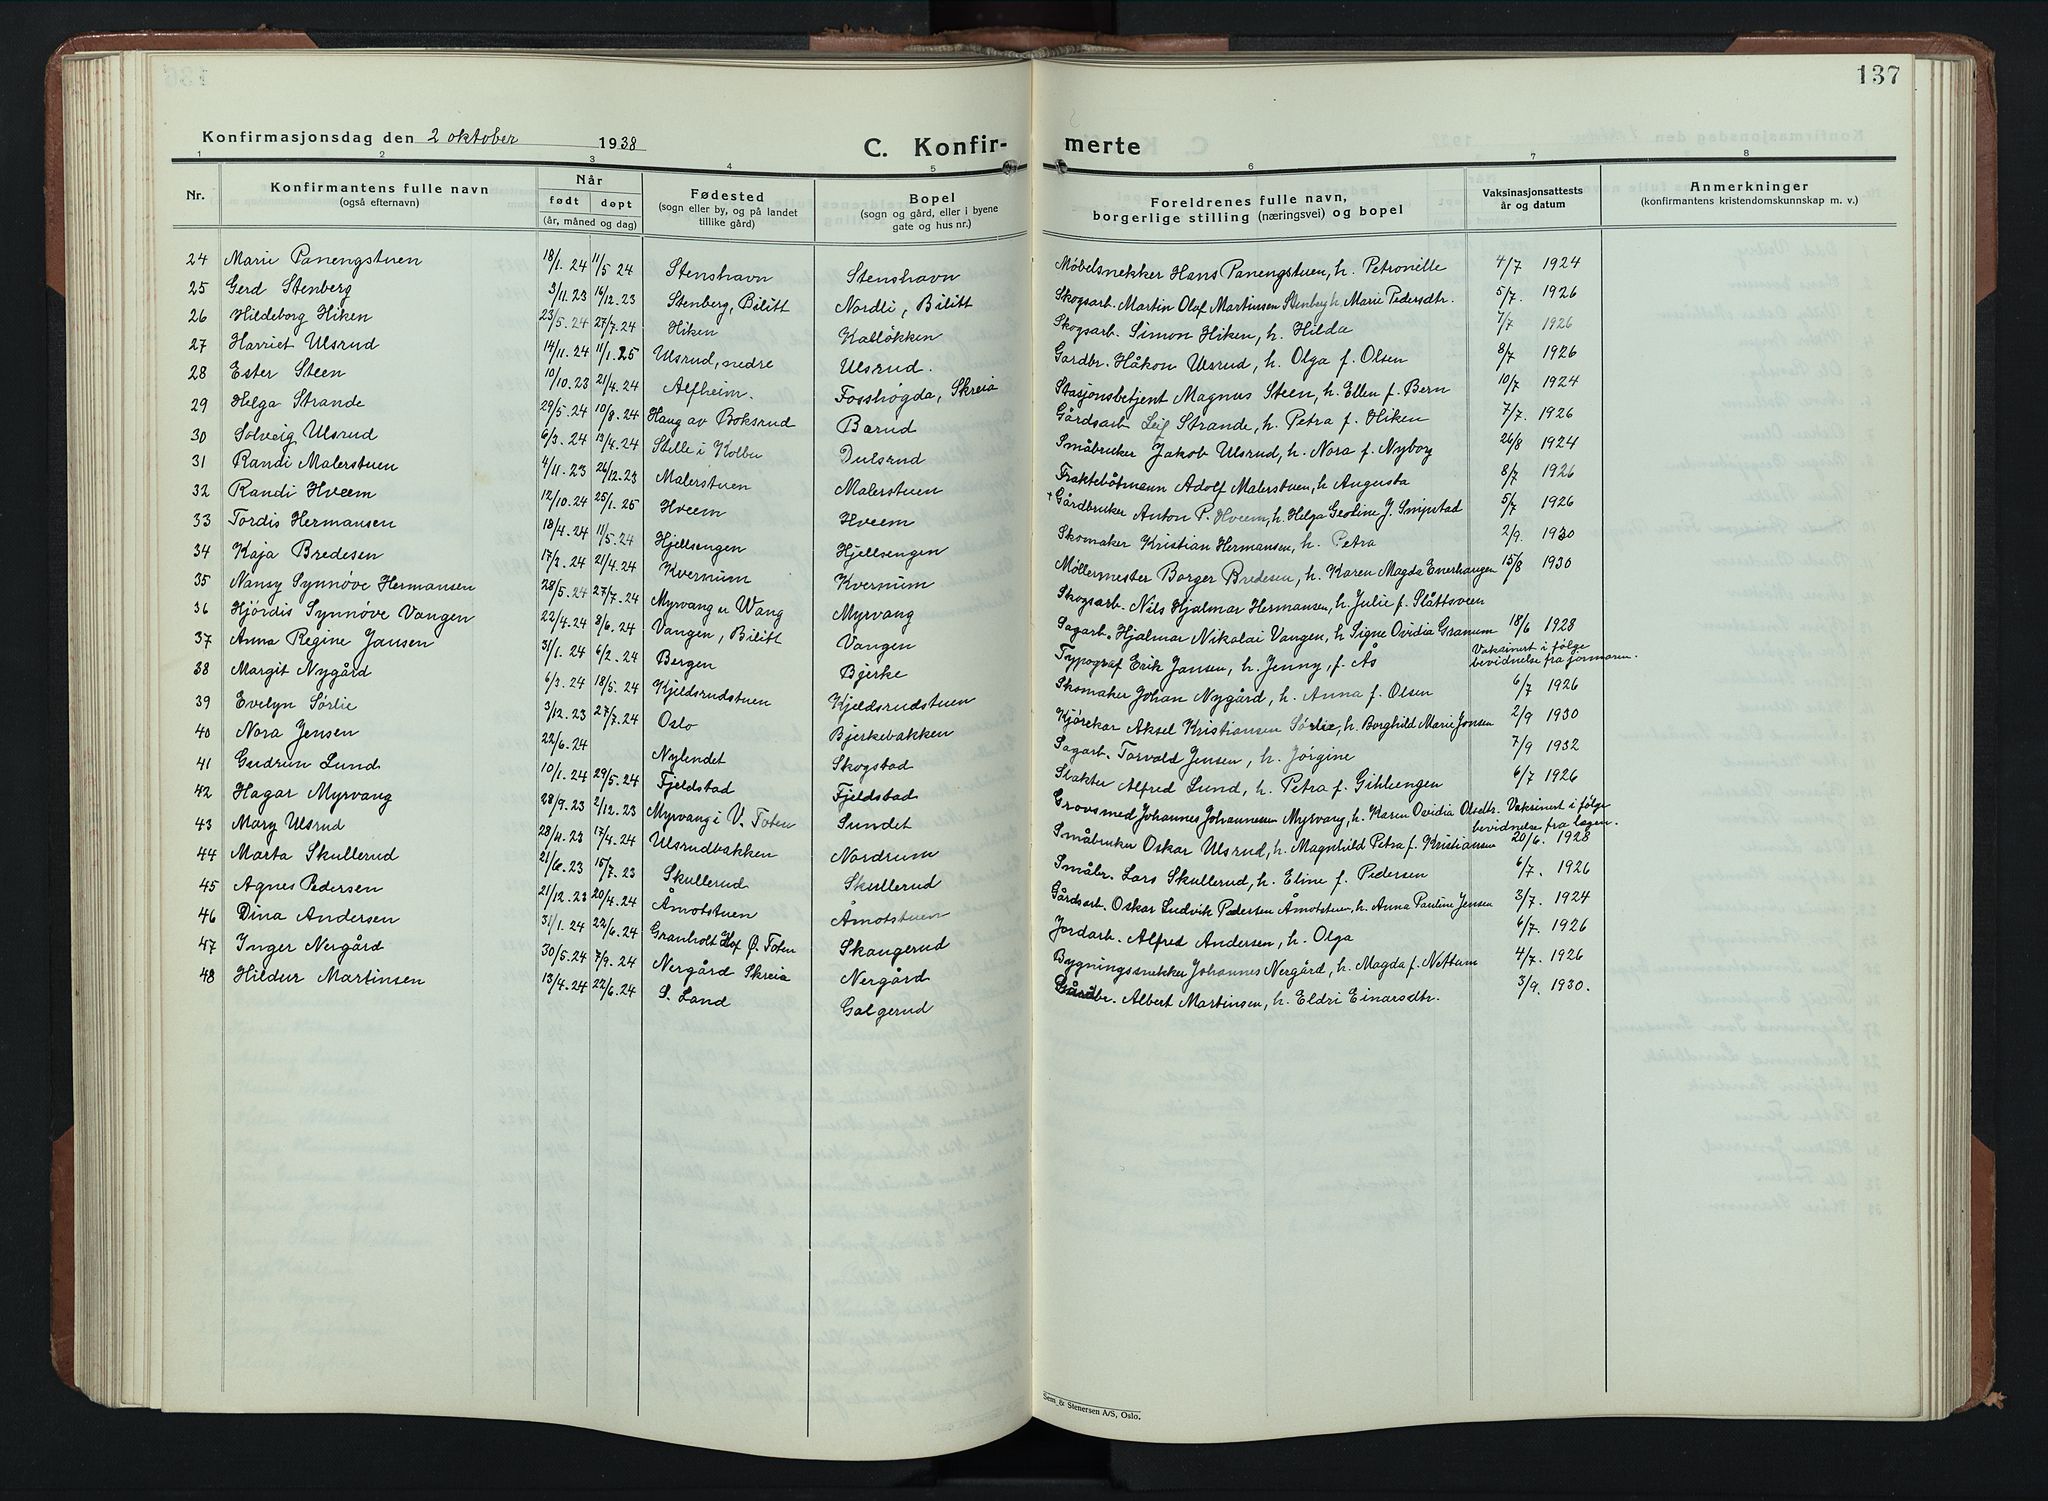 137
Konfirmasjonsdag den 2 oktober 1938
C. Konfir- merte
1 2 3 4 5 6 7 8
Nr. Konfirmantens fulle navn (også efternavn) Når født døpt (år, måned og dag) Fødested (sogn eller by, og på landet tillike gård) Bopel (sogn og gård, eller i byene gate og hus nr.) Foreldrenes fulle navn, borgerlige stilling (næringsvei) og bopel Vaksinasjonsattests år og datum Anmerkninger (konfirmantens kristendomskunnskap m. v.)
24 Marie Panengstuen 18/1. 24 11/5 24 Stenshavn Stenshavn Møbelsnekker Hans Panengstuen, h. Petronille 4/7 1924
25 Gerd Stenberg 3/11. 23 16/12. 23 Stenberg, Bilitt Nordli, Bilitt Skogsarb. Martin Olaf Martinsen Stenberg h. Marie Pedersdtr. 5/7. 1926
26 Hildeborg Hiken 23/5. 24 27/7. 24 Hiken Kalløkken Skogsarb. Simon Hiken, h. Hilda 7/7 1926
27 Harriet Ulsrud 14/11. 24 11/1. 25 Ulsrud, nedre Ulsrud. Gardbr. Håkon Ulsrud, h. Olga f. Olsen 8/7 1926
28 Ester Steen 10/10. 23 21/4. 24 Alfheim. Fosshøgda, Skreia Stasjonsbetjent Magnus Steen, h. Ellen f. Bern 10/7 1924
29 Helga Strande 29/5. 24 10/8. 24 Haug av Boksrud Barud Gårdsarb Leif Strande, h. Petra f. Hiken 7/7. 1926
30 Solveig Ulsrud 6/3. 24 13/4. 24 Stille i Kolbu Dulsrud Småbruker Jakob Ulsrud, h. Nora f. Nyborg 26/8 1924
31 Randi Malerstuen 4/11. 23 26/12. 23 Malerstuen Malerstuen Fraktebåtmann Adolf Malerstuen, h Augusta 8/7 1926
32 Randi Hveem 12/10. 24 25/1. 25 Hveem Hveem + Gårdbruker Anton P. Hveem, h. Helga Geoline J. Smistad 5/7 1926
33 Tordis Hermansen 18/4. 24 11/5. 24 Hjellsengen Hjellsengen Skomaker Kristian Hermansen, h. Petra 2/9. 1930
34 Kaja Bredesen 17/3. 24 21/4. 24 Kvernum Kvernum Møllermester Borger Bredesen, h. Karen Magda Enerhaugen 15/8 1930
35 Nansy Synnøve Hermansen 28/5. 24 27/7. 24 Myrvang u Wang Myrvang Skogsarb. Nils Hjalmar Hermansen, h. Julie f. Slåttsveen
36 Hjørdis Synnøve Vangen 22/4. 24 8/6. 24 Vangen, Bilitt Vangen Sagarb. Hjalmar Nikolai Vangen, h Signe Ovidia Granum 18/6 1928
37 Anna Regine Jansen 31/1. 24 6/2. 24 Bergen Bjerke Typograf Erik Jansen, h. Jenny, f. Ås Vaksinert i følge bevidnelse fra formoren.
38 Margit Nygård 6/3. 24 18/5. 24 Kjeldsrudstuen Kjeldsrudstuen Skomaker Johan Nygård, h. Anna f. Olsen 6/7 1926
39 Evelyn Sørlie 3/12. 23 27/7. 24 Oslo Bjerkebakken Kjørekar Aksel Kristiansen Sørlie, h. Borghild Marie Jonsen 2/9 1930
40 Nora Jensen 22/6. 24 Nylendet Skogstad Sagarb. Torvald Jensen, h. Jørgine 7/9 1932
41 Gudrun Lund 10/1. 24 29/5. 24 Fjeldstad Fjeldstad Slakter Alfred Lund, h. Petra f. Gihleengen 6/7 1926
42 Hagar Myrvang 28/9. 23 2/12. 23 Myrvang i V. Toten Sundet Grovsmed Johannes Johannesen Myrvang, h. Karen Ovidia Olsdtr. Vaksinert i følge bevidnelse fra lægen.
43 Mary Ulsrud 28/4. 23 17/4. 24 Ulsrudbakken Nordrum Småbruker Oskar Ulsrud, h. Magnhild Petra f. Kristiansen 20/6. 1928
44 Marta Skullerud 21/6. 23 15/7. 23 Skullerud Skullerud Småbr. Lars Skullerud, h. Eline f. Pedersen 6/7. 1926
45 Agnes Pedersen 21/12. 23 20/4. 24 Åmotstuen Åmotstuen Gårdsarb. Oskar Ludvik Pedersen Åmotstuen, h. Anna Pauline Jensen 3/7. 1924
46 Dina Andersen 31/1. 24 22/6. 24 Granholt Hof Ø. Toten Skaugerud Jordarb. Alfred Andersen, h. Olga 6/7. 1926
47 Inger Nergård 30/5. 24 7/9. 24 Nergård Skreia Nergård Bygningssnekker Johannes Nergård, h. Magda f. Nettum 4/7. 1926
48 Hildur Martinsen 13/4. 24 22/6. 24 S. Land Galgerud Gårdbr. Albert Martinsen, h. Eldri Einarsdtr. 3/9. 1930.
Sem & Stenersen A/S, Oslo.